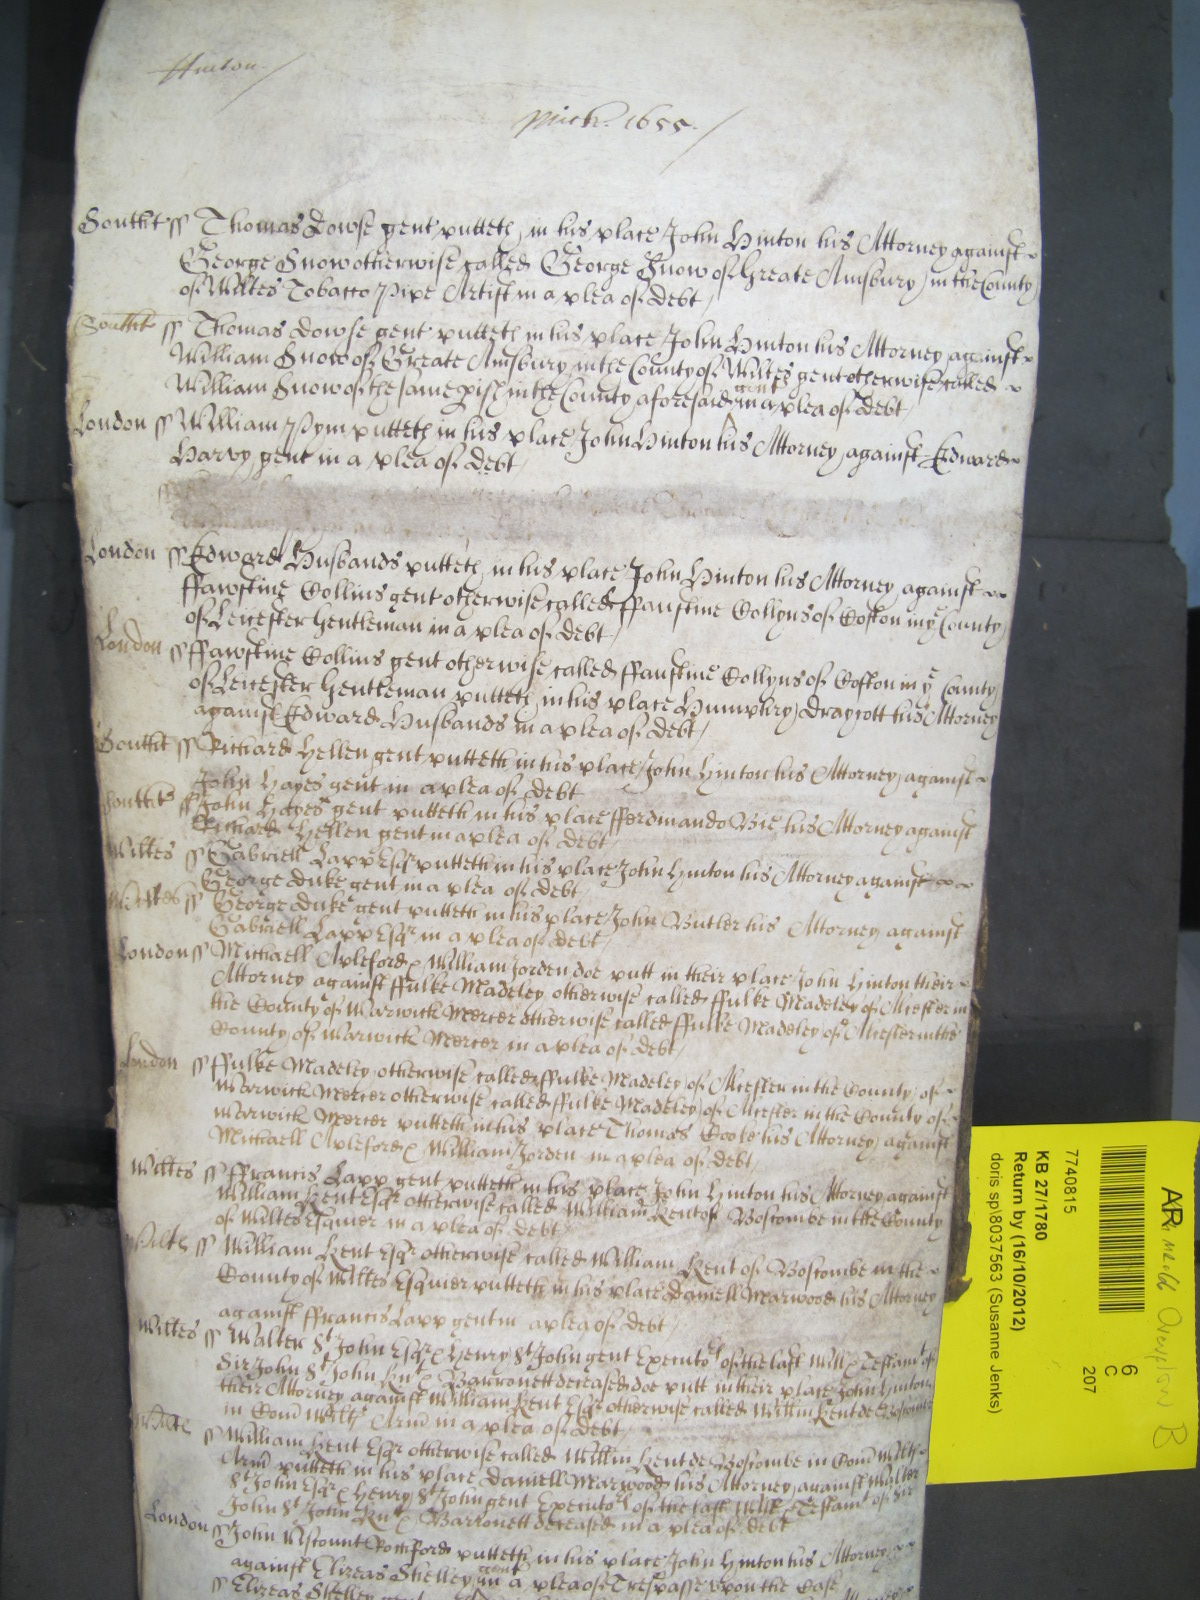 Hinton.
Mich. 1655.
Southt ss Thomas Dowse gent putteth in his place John Hinton his Attorney against
George Snow otherwise called George Snow of Greate Amsbury in the County
of Wiltes Tobacco Pipe Artist in a plea of debt
Southt ss Thomas Dowse gent putteth in his place John Hinton his Attorney against
William Snow of Greate Amsbury in the County of Wiltes gent otherwise called
William Snow of the same pish in the County aforesaid gent in a plea of debt
London ss William Pym putteth in his place John Hinton his Attorney against Edward
Harvy gent in a plea of debt
London ss Edward Husbands putteth in his place John Hinton his Attorney against
ffawstine Collins gent otherwise called ffaustine Collyns of Cosson in ye County
of Leicester Gentleman in a plea of debt
London ss ffawstine Collins gent otherwise called ffaustine Collyns of Cosson in ye County
of Leicester Gentleman putteth in his place Humphry Draycott his Attorney
against Edward Husbands in a plea of debt
Southt ss Richard Hellen gent putteth in his place John Hinton his Attorney against
John Hayes gent in a plea of debt
Southt ss John Hayes gent putteth in his place fferdinando Bie his Attorney against
Richard Hellen gent in a plea of debt
Wiltes ss Gabriell Lapp Esqr putteth in his place John Hinton his Attorney against
George Duke gent in a plea of debt
Wiltes ss George Duke gent putteth in his place John Butler his Attorney against
Gabriell Lapp Esqr in a plea of debt
London ss Michaell Apleford & William Jorden doe putt in their place John Hinton their
Attorney against ffulke Madeley otherwise called ffulke Madeley of Alcester in
the County of Warwick Mercer otherwise called ffulke Madeley of Alcester in the
County of Warwick Mercer in a plea of debt
London ss ffulke Madeley otherwise called ffulke Madeley of Alcester in the County of
Warwick Mercer otherwise called ffulke Madeley of Alcester in the County of
Warwick Mercer putteth in his place Thomas Coole his Attorney against
Michaell Apleford & William Jorden in a plea of debt
Wiltes ss ffrancis Lapp gent putteth in his place John Hinton his Attorney against
William Kent Esqr otherwise called William Kent of Boscombe in the County
of Wiltes Esquier in a plea of debt
Wilts ss William Kent Esqr otherwise called William Kent of Boscombe in the
County of Wiltes Esquier putteth in his place Daniell Marwood his Attorney
against ffrancis Lapp gent in a plea of debt
Wiltes ss Walter St John Esqr & Henry St John gent Executors of the last Will & Testamt of
Sir John St John Knt & Barronett deceased doe putt in their place John Hinton
their Attorney against William Kent Esqr otherwise called Willm Kent de Boscombe
in Com Wilts Arm in a plea of debt
ss William Kent Esqr otherwise called Willm Kent de Boscombe in Com Wilts
Arm putteth in his place Daniell Marwood his Attorney against Walter
St John Esqr & Henry St John gent Executors of the last Will & Testamt of Sir
John St John Knt & Barronett deceased in a plea of debt
London ss John Viscount Rochford putteth in his place John Hinton his Attorney
against Elizeas Shelley gent in a plea of Trespasse upon the Case
ss Elizeas Shelley gent
AR
B
6
C
207
7740815
KB 27/1780
Return by (16/10/2012)
doris sp\8037563 (Susanne Jenks)